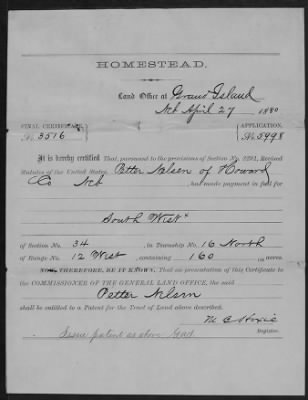 HOMESTEAD.
Land Office at Grand Island
Neb April 27 1880
FINAL CERTIFICATE, APPLICATION,
No. 3516 No. 5998
It is hereby certified That, pursuant to the provisions of Section No. 2291, Revised
Statutes of the United States, Petter Nelsen of Howard
Co Neb has made payment in full for
South West 4
of Section No. 34 in Township No. 16 North
of Range No. 12 West, containing 160 acres.
NOW, THEREFORE, BE IT KNOWN, That on presentation of this Certificate to
the COMMISSIONER OF THE GENERAL LAND OFFICE, the said
Petter Nelsen
shall be entitled to a Patent for the Tract of Land above described.
M. B Hoxie
Register.
Issue patent as above